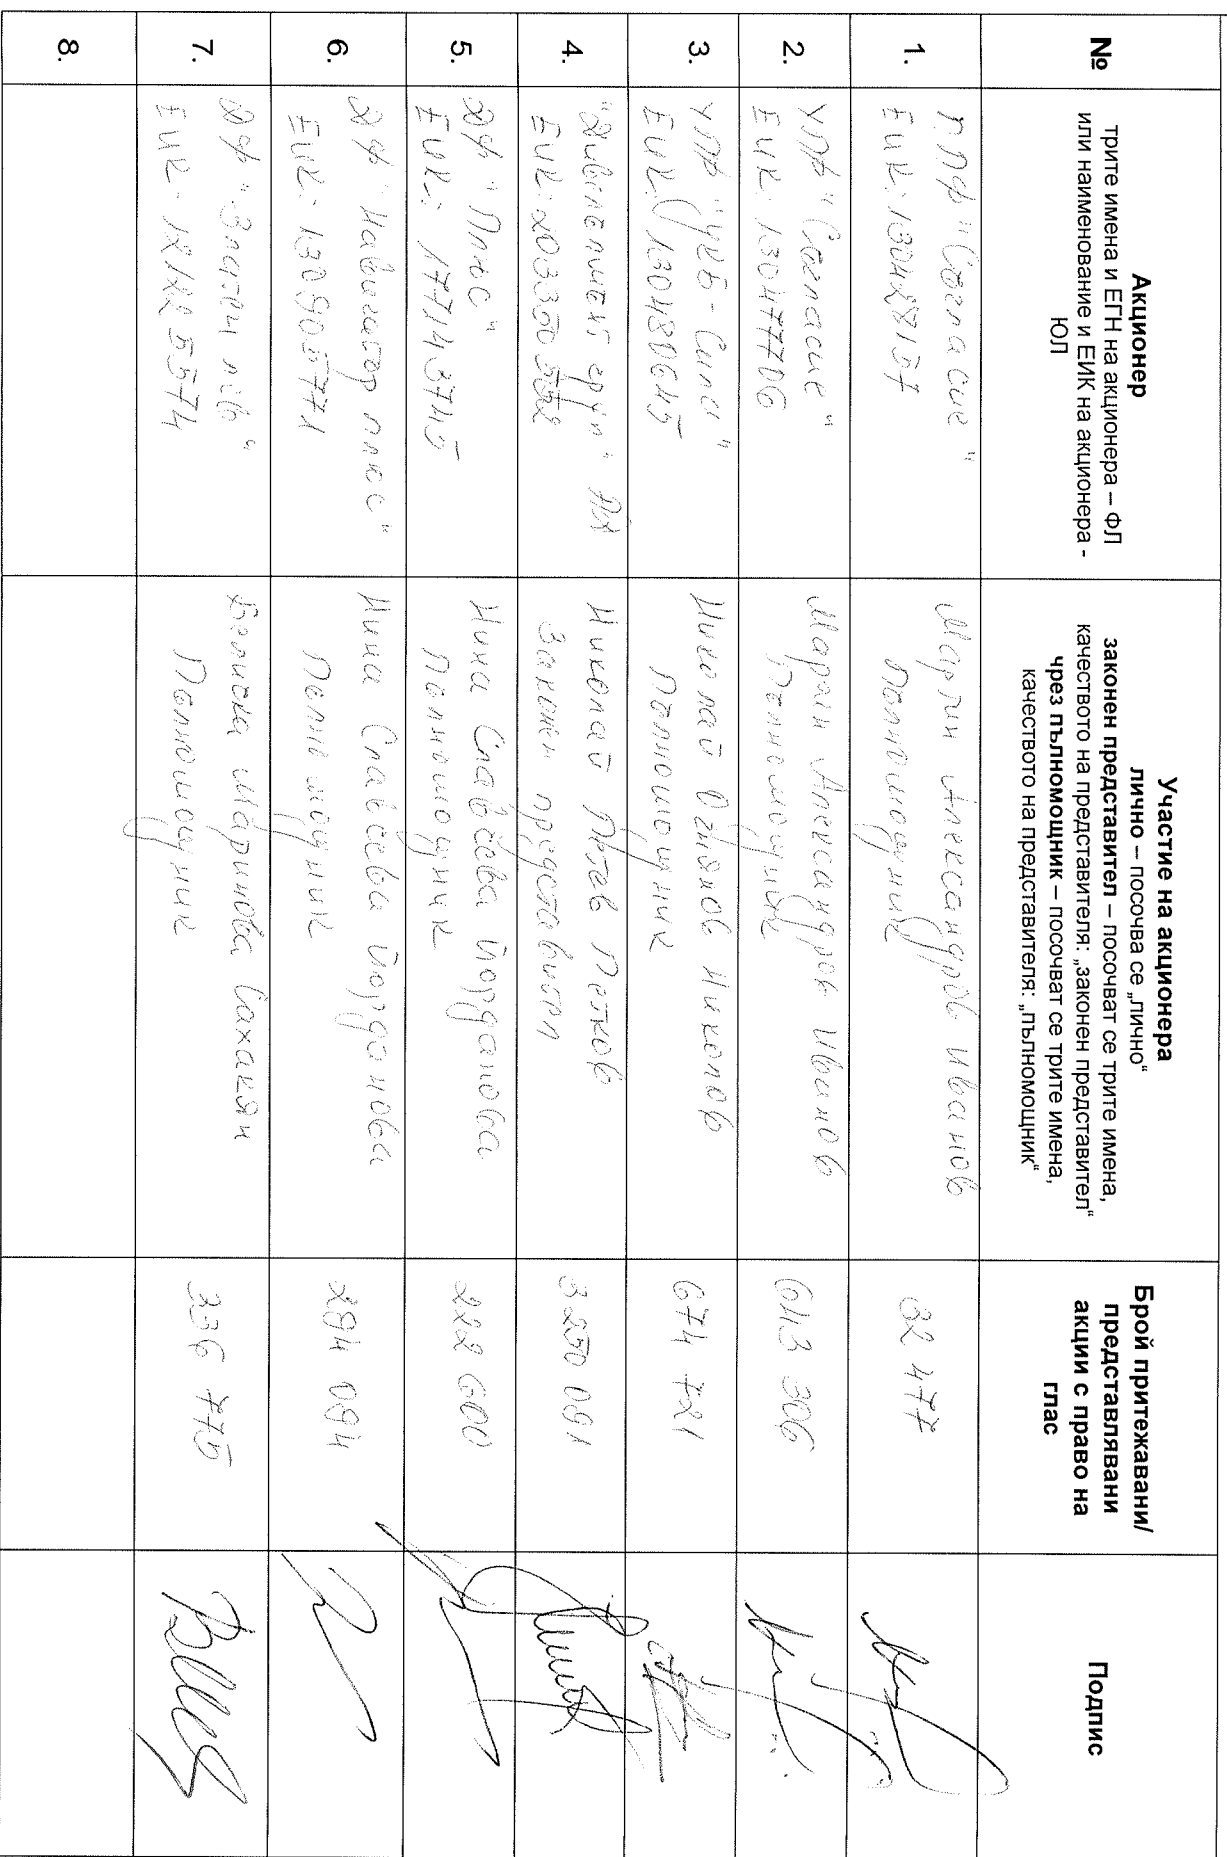 №
Акционер
трите имена и ЕГН на акционера – ФЛ
или наименование и ЕИК на акционера -
ЮЛ
Участие на акционера
лично – посочва се „лично“
законен представител – посочват се трите имена,
качеството на представителя: „законен представител“
чрез пълномощник – посочват се трите имена,
качеството на представителя: „пълномощник“
Брой притежавани/
представлявани
акции с право на
глас
Подпис
1.
ППФ "Съгласие"
ЕИК: 130428157
Мартин Александров Иванов
Пълномощник
32 477
2.
УПФ "Съгласие"
ЕИК: 130477706
Мартин Александров Иванов
Пълномощник
613 306
3.
УПФ "ЦКБ-Сила"
ЕИК: 130480645
Николай Огнянов Николов
Пълномощник
674 721
4.
ЕИК: 203350552
Николай Петков
Законен представител
3 250 091
5.
ДФ "Плюс"
ЕИК: 177143715
Нина Славчева Йорданова
Пълномощник
222 600
6.
ДФ "Навигатор плюс"
ЕИК: 130905771
Нина Славчева Йорданова
Пълномощник
294 094
7.
ДФ "Златен лъв"
ЕИК: 121225574
Маринова Сахакян
Пълномощник
336 775
8.